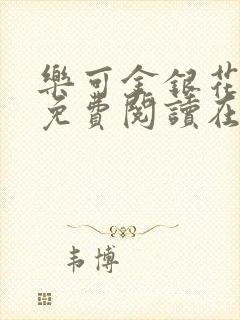 樂可金銀花
免費閱讀在
韦博